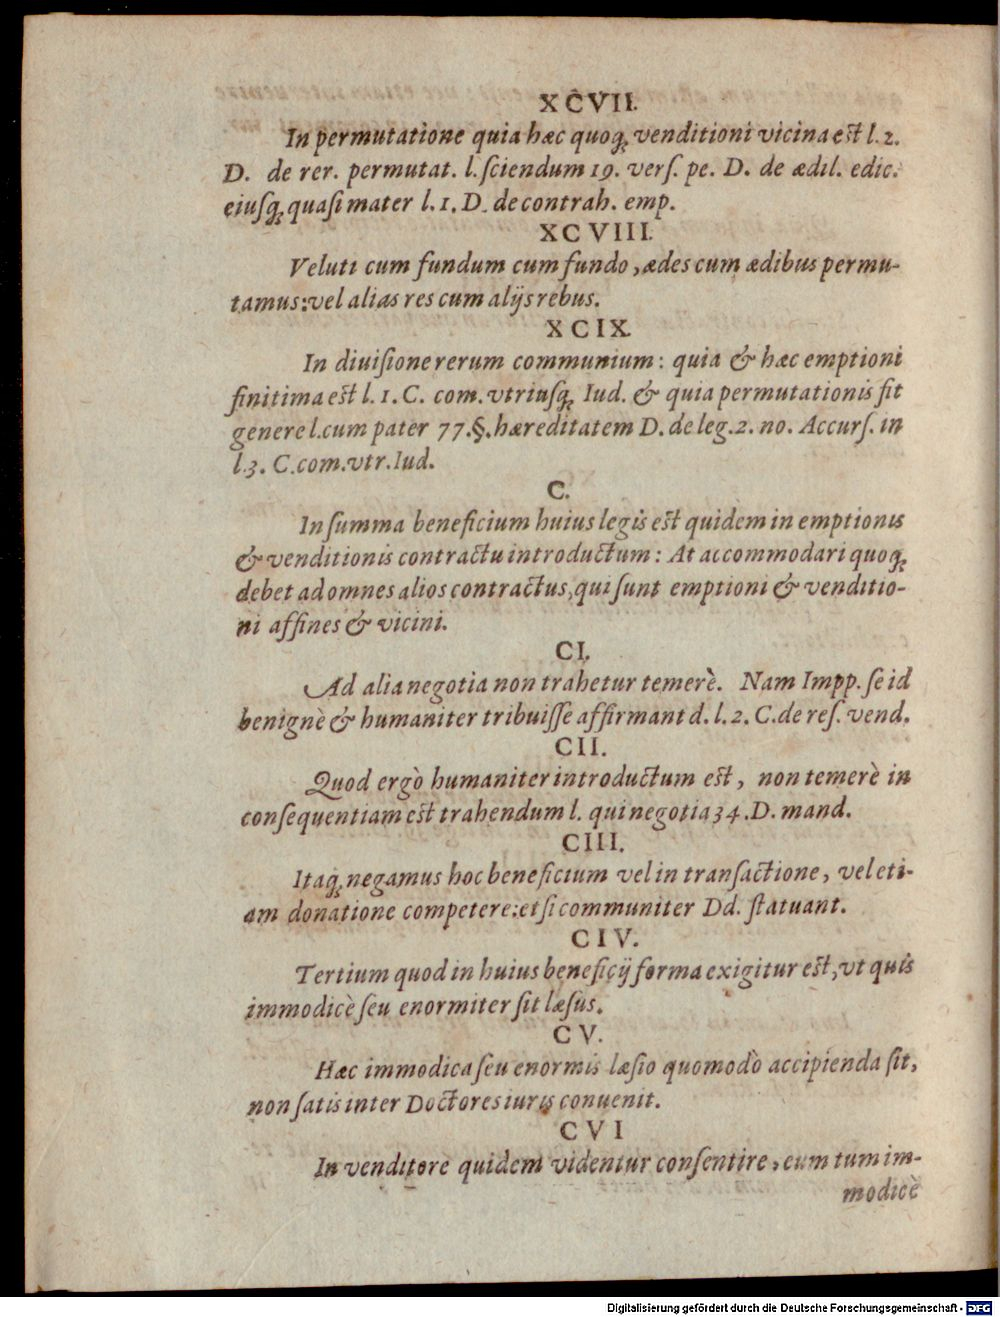 XCVII.
In permutatione quia hæc quoq́; venditioni vicina eſt l. 2.
D. de rer. permutat. l. ſciendum 19. verſ. pe. D. de ædil. edic.
eiuſq́; quaſi mater l. 1. D. de contrah. emp.
XCVIII.
Veluti cum fundum cum fundo, ædes cum ædibus permu-
tamus: vel alias res cum alijs rebus.
XCIX.
In diuiſione rerum communium: quia & hæc emptioni
finitima eſt l. 1. C. com. vtriuſq́; Iud. & quia permutationis fit
genere l. cum pater 77. §. hæreditatem D. de leg. 2. no. Accurſ. in
l. 3. C. com. vtr. Iud.
C.
In ſumma beneficium huius legis eſt quidem in emptionis
& venditionis contractu introductum: At accommodari quoq́;
debet ad omnes alios contractus, qui ſunt emptioni & venditio-
ni affines & vicini.
CI.
Ad alia negotia non trahetur temerè. Nam Impp. ſe id
benignè & humaniter tribuiſſe affirmant d. l. 2. C. de reſ. vend.
CII.
Quod ergò humaniter introductum eſt, non temerè in
conſequentiam eſt trahendum l. qui negotia 34. D. mand.
CIII.
Itaq́; negamus hoc beneficium vel in tranſactione, vel eti-
am donatione competere: etſi communiter Dd. ſtatuant.
CIV.
Tertium quod in huius beneficij forma exigitur eſt, vt quis
immodicè ſeu enormiter ſit læſus.
CV.
Hæc immodica ſeu enormis læſio quomodò accipienda ſit,
non ſatis inter Doctores iuris conuenit.
CVI
In venditore quidem videntur conſentire, eum tum im-
modicè
Digitalisierung gefördert durch die Deutsche Forschungsgemeinschaft - DFG